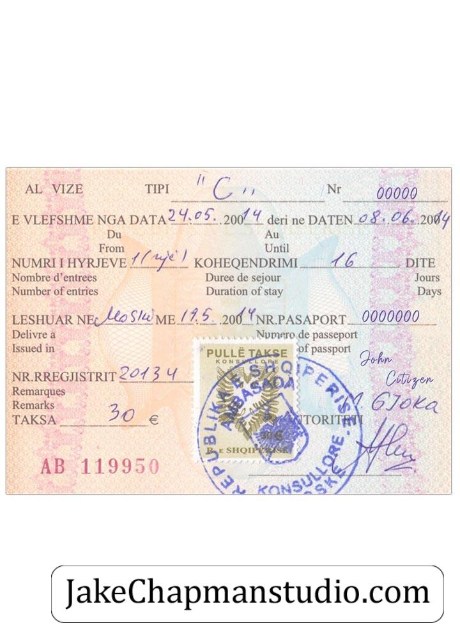 AL VIZE TIPI "C" Nr 00000
E VLEFSHME NGA DATA 24.05. 2014 deri ne DATEN 08.06. 2014
Du Au
From Until
NUMRI I HYRJEVE 1 (një) KOHEQENDRIMI 16 DITE
Nombre d'entrees Duree de sejour Jours
Number of entries Duration of stay Days
LESHUAR NE Moskë ME 19.5. 2014 NR.PASAPORT 0000000
Delivre à Numero de passeport
Issued in of passport
John
Citizen
NR.RREGJISTRIT 20134
Remarques
Remarks
GJOKA
TAKSA 30 €
AUTORITETI
PULLË TAKSE
KONSULLORE
R. E SHQIPERISË
REPUBLIKA E SHQIPERISE
AMBASADA
KONSULLORE
AB 119950
JakeChapmanstudio.com